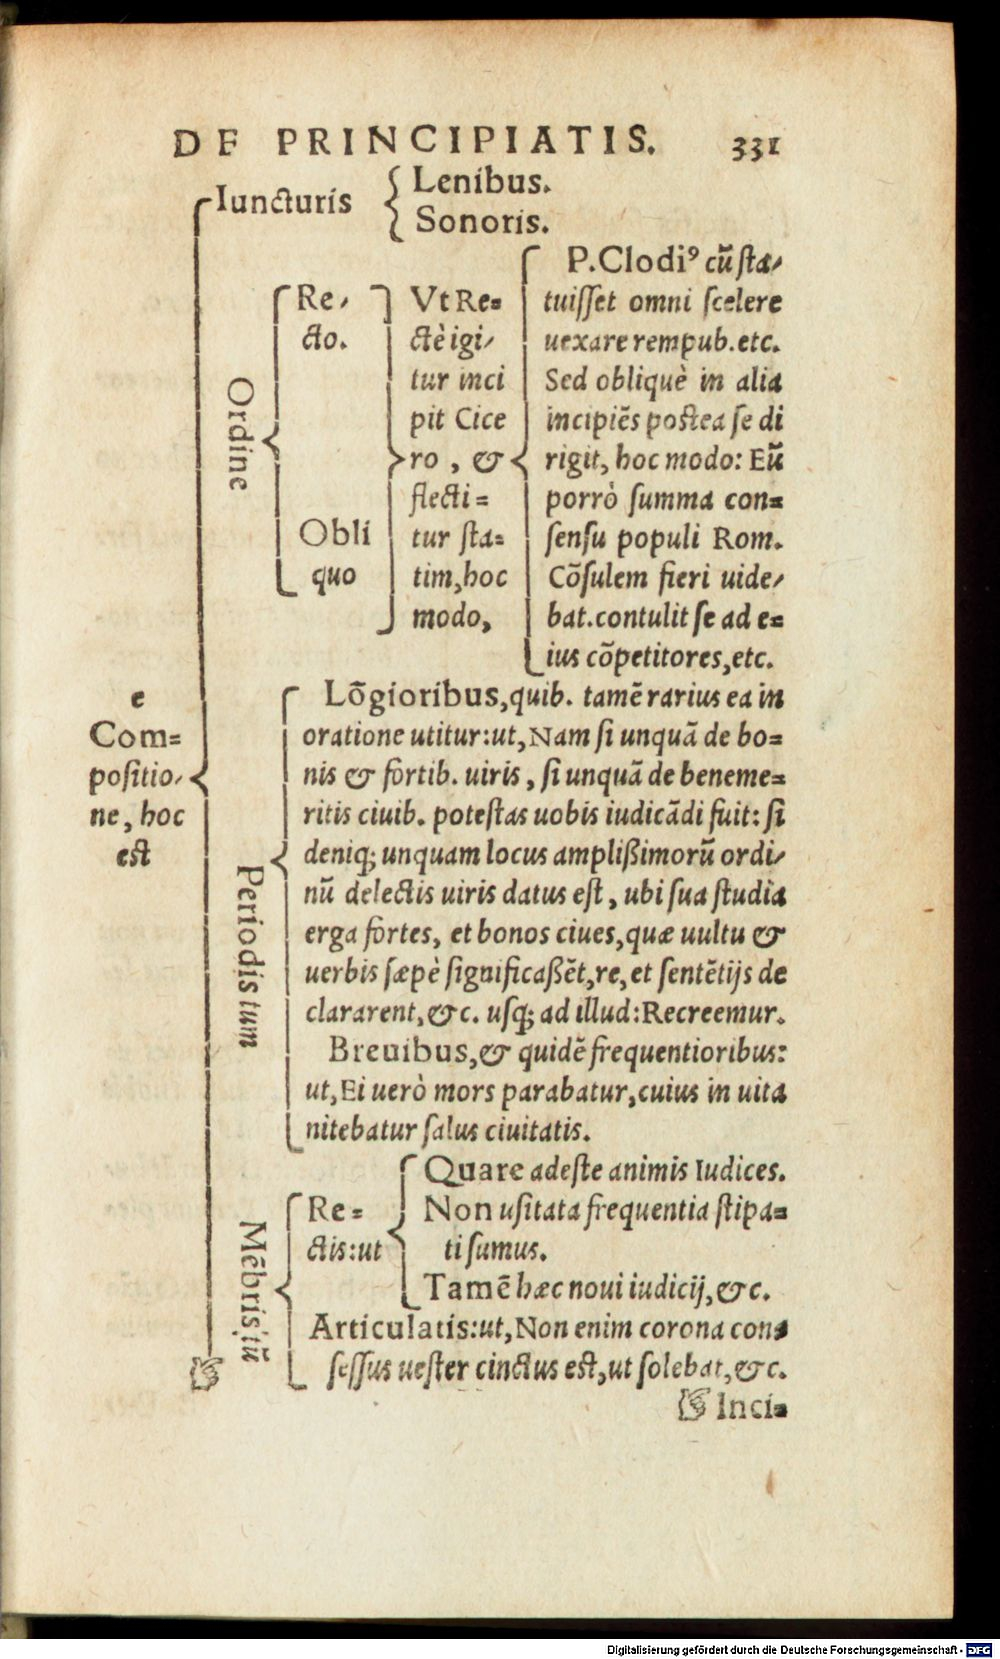 DE PRINCIPIATIS. 331
e
Com=
positio/
ne, hoc
est
Iuncturis
Lenibus.
Sonoris.
Ordine
Re/
cto.
Obli
quo
Vt Re=
ctè igi/
tur inci
pit Cice
ro, &
flecti=
tur sta=
tim, hoc
modo,
P. Clodi⁹ cũ sta/
tuisset omni scelere
uexare rempub. etc.
Sed obliquè in alia
incipiẽs postea se di
rigit, hoc modo: Eũ
porrò summa con=
sensu populi Rom.
Cõsulem fieri uide/
bat. contulit se ad e=
ius cõpetitores, etc.
Periodis tum
Lõgioribus, quib. tamẽ rarius ea in
oratione utitur: ut, Nam si unquã de bo=
nis & fortib. uiris, si unquã de beneme=
ritis ciuib. potestas uobis iudicãdi fuit: si
deniq; unquam locus amplißimorũ ordi/
nũ delectis uiris datus est, ubi sua studia
erga fortes, et bonos ciues, quæ uultu &
uerbis sæpè significaßẽt, re, et sentẽtijs de
clararent, &c. usq; ad illud: Recreemur.
Breuibus, & quidẽ frequentioribus:
ut, Ei uerò mors parabatur, cuius in uita
nitebatur salus ciuitatis.
Mẽbris, tũ
Re=
ctis: ut
Quare adeste animis Iudices.
Non usitata frequentia stipa=
ti sumus.
Tamẽ hæc noui iudicij, &c.
Articulatis: ut, Non enim corona cons
sessus uester cinctus est, ut solebat, &c.
☞
☞ Inci=
Digitalisierung gefördert durch die Deutsche Forschungsgemeinschaft - DFG